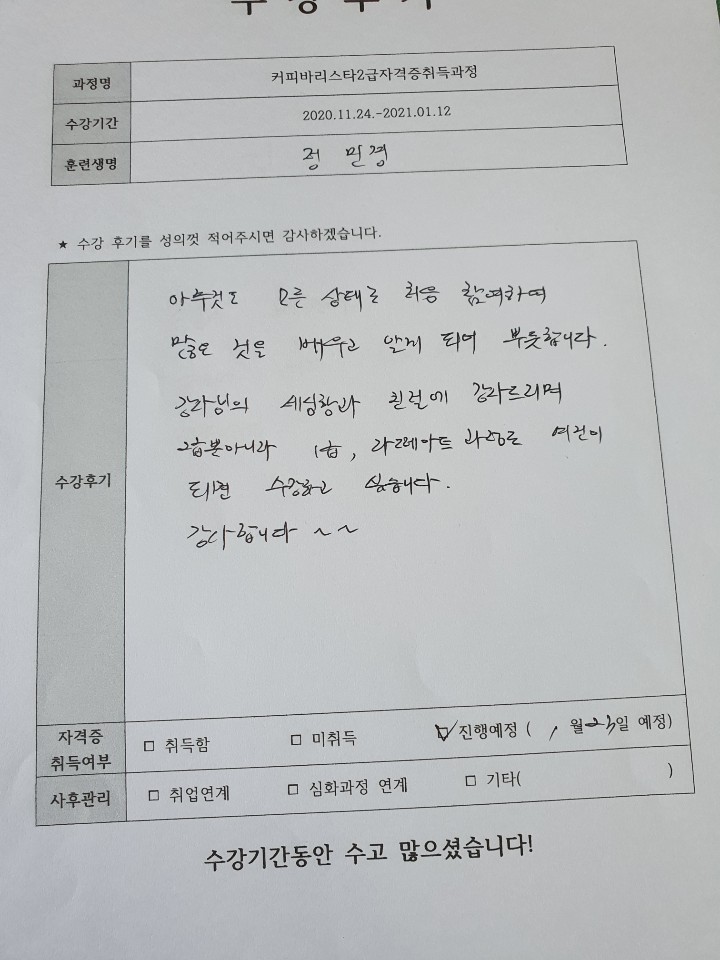 수강후기
과정명 커피바리스타2급자격증취득과정
수강기간 2020.11.24.-2021.01.12
훈련생명 정 민경
★ 수강 후기를 성의껏 적어주시면 감사하겠습니다.
수강후기
아무것도 모른 상태로 처음 참여하여
많은 것을 배우고 알게 되어 뿌듯합니다.
강사님의 세심함과 친절에 감사드리며
2급뿐아니라 1급, 라떼아트 과정도 여건이
되면 수강하고 싶습니다.
감사합니다 ~~
자격증 취득여부 □ 취득함 □ 미취득 ☑ 진행예정 ( 1월 23일 예정)
사후관리 □ 취업연계 □ 심화과정 연계 □ 기타( )
수강기간동안 수고 많으셨습니다!